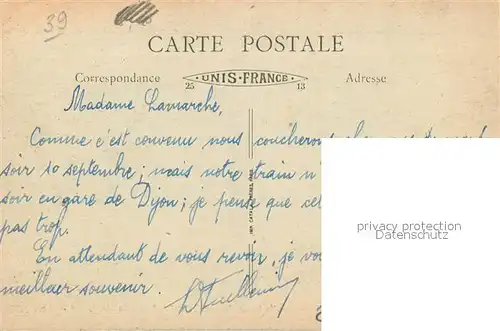 39
CARTE POSTALE
Correspondance 25 UNIS-FRANCE 13 Adresse
Madame Lamarche,
Comme c'est convenu nous coucherons
soir 10 septembre ; mais notre train n
soir en gare de Dijon ; je pense que cel
pas trop.
En attendant de vous revoir, je vo
meilleur souvenir.
privacy protection
Datenschutz